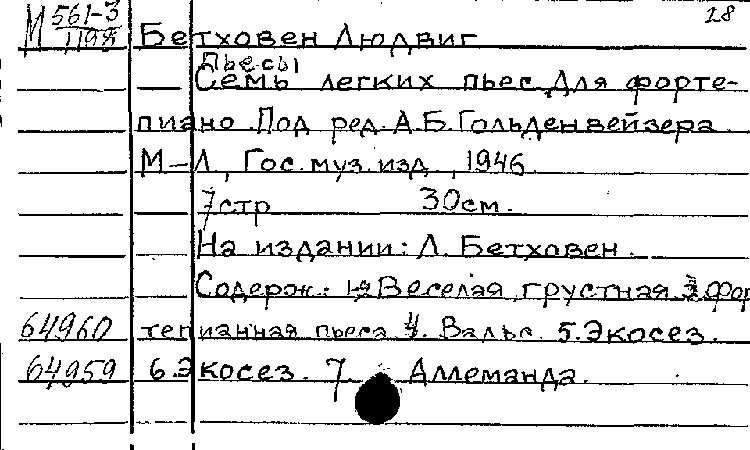 М 561-3
1198
28
Бетховен Людвиг
Пьесы
Семь легких пьес. Для форте-
пиано. Под ред. А.Б. Гольденвейзера
М-Л, Гос. муз. изд., 1946
7 стр 30 см.
На издании: Л. Бетховен.
Содерж.: 1-2 Веселая, грустная 3 фор
64960 тепианная пьеса 4. Вальс 5. Экосез.
64959 6. Экосез. 7. Аллеманда.